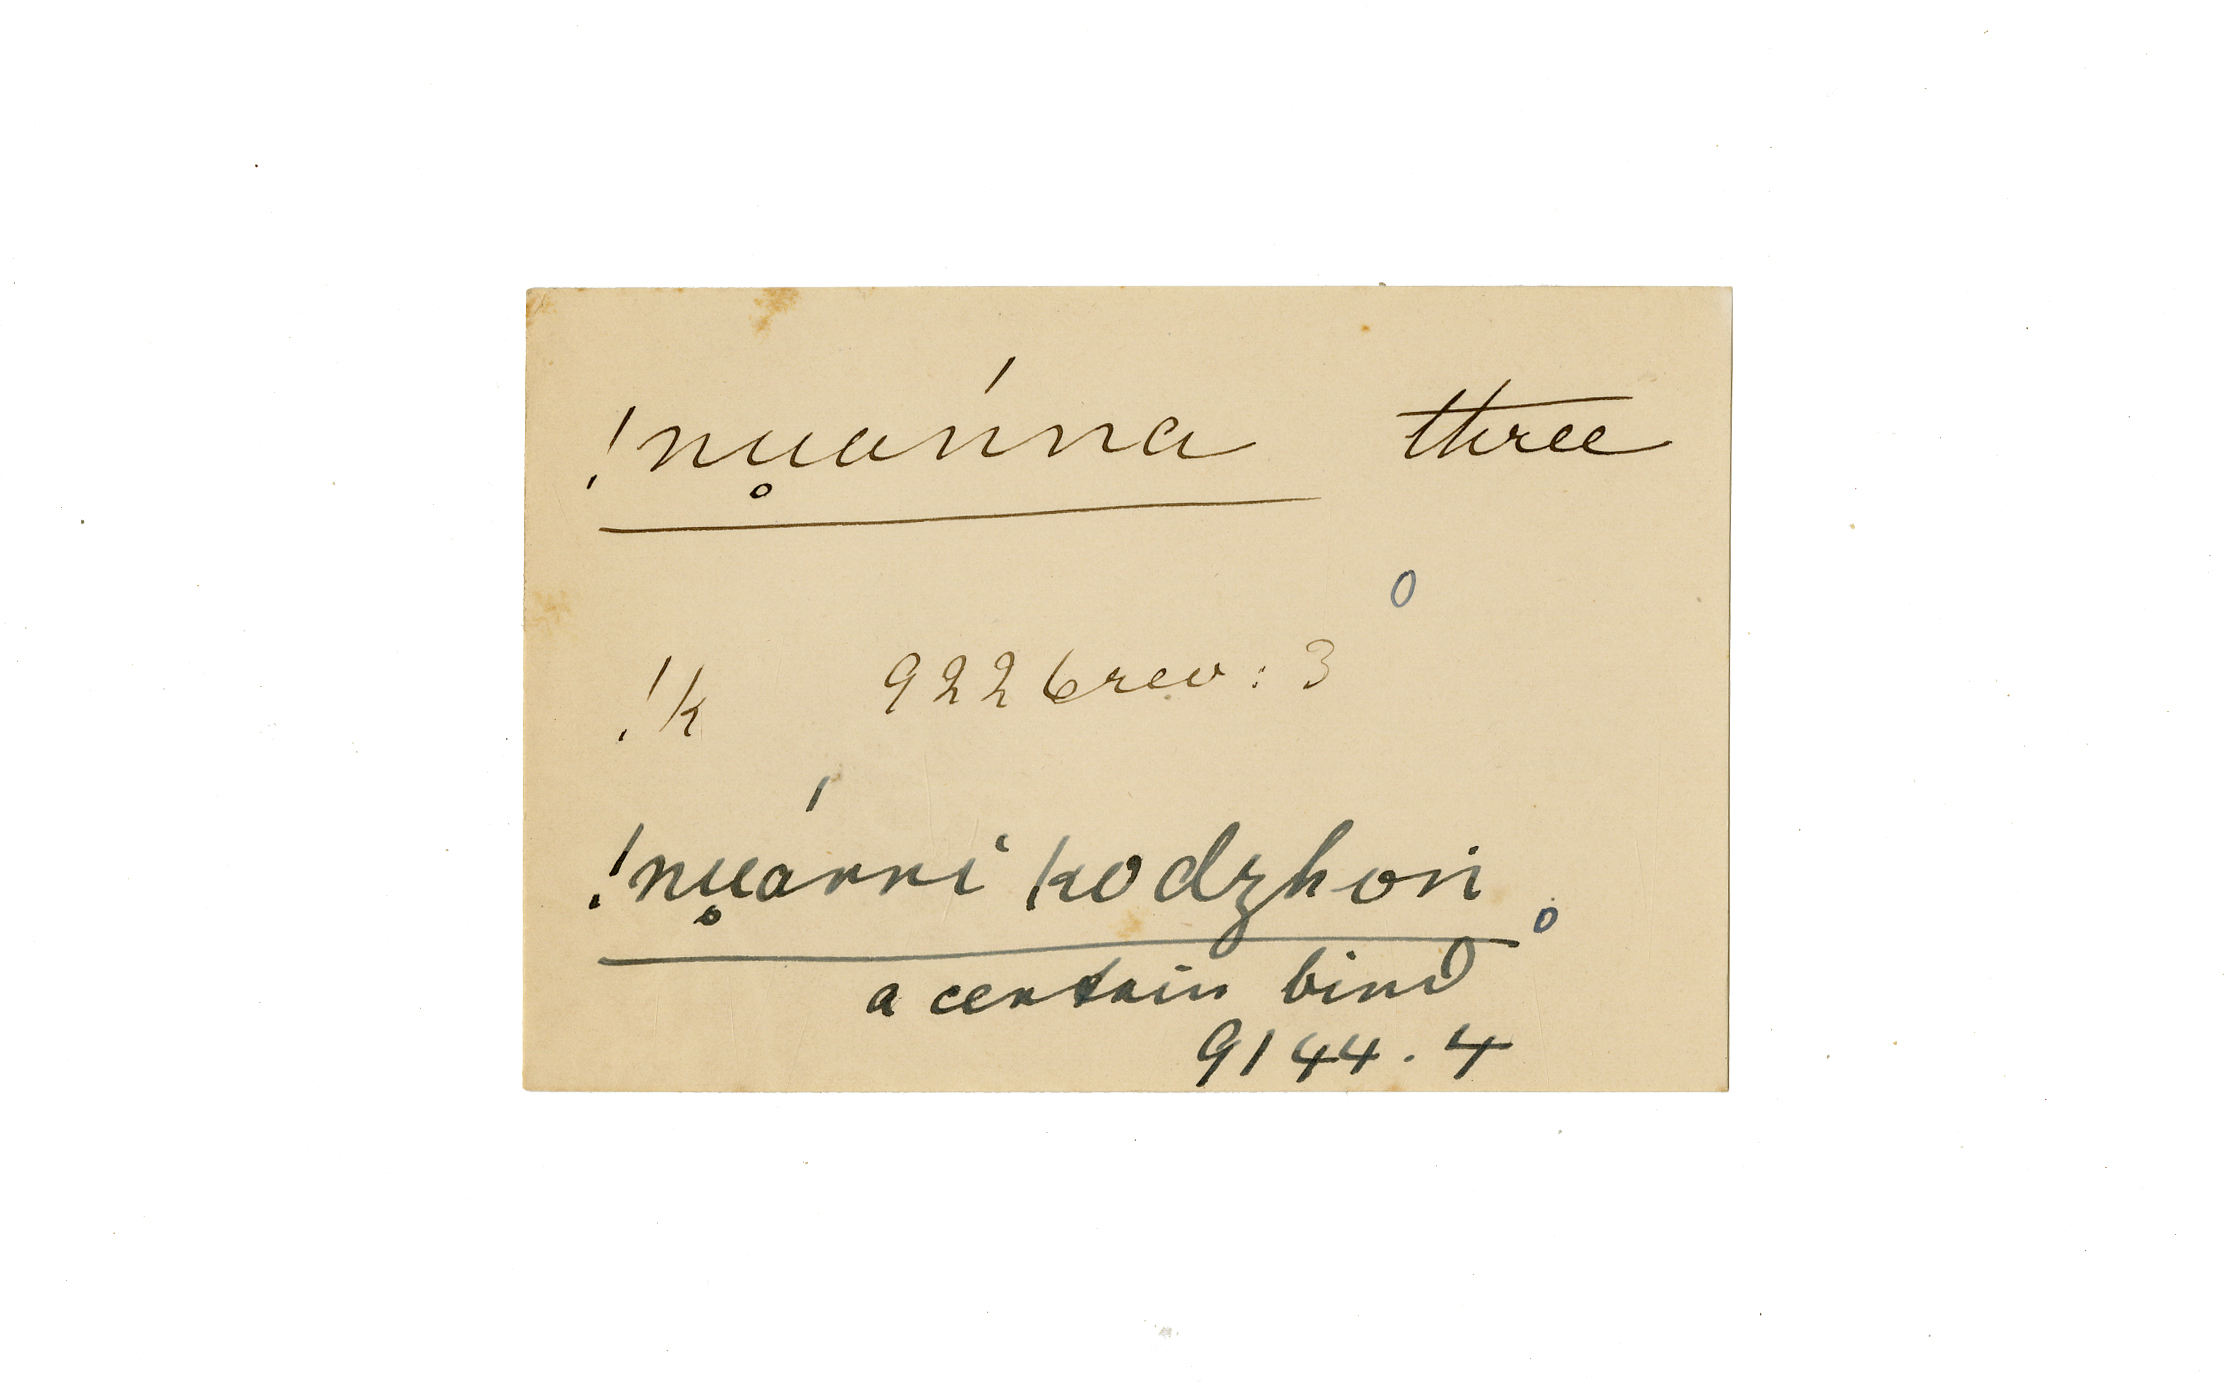 !nu̥ánna three
0
!k 9226 rev: 3
!nu̥árri kodzhori 0
a certain bird
9144.4